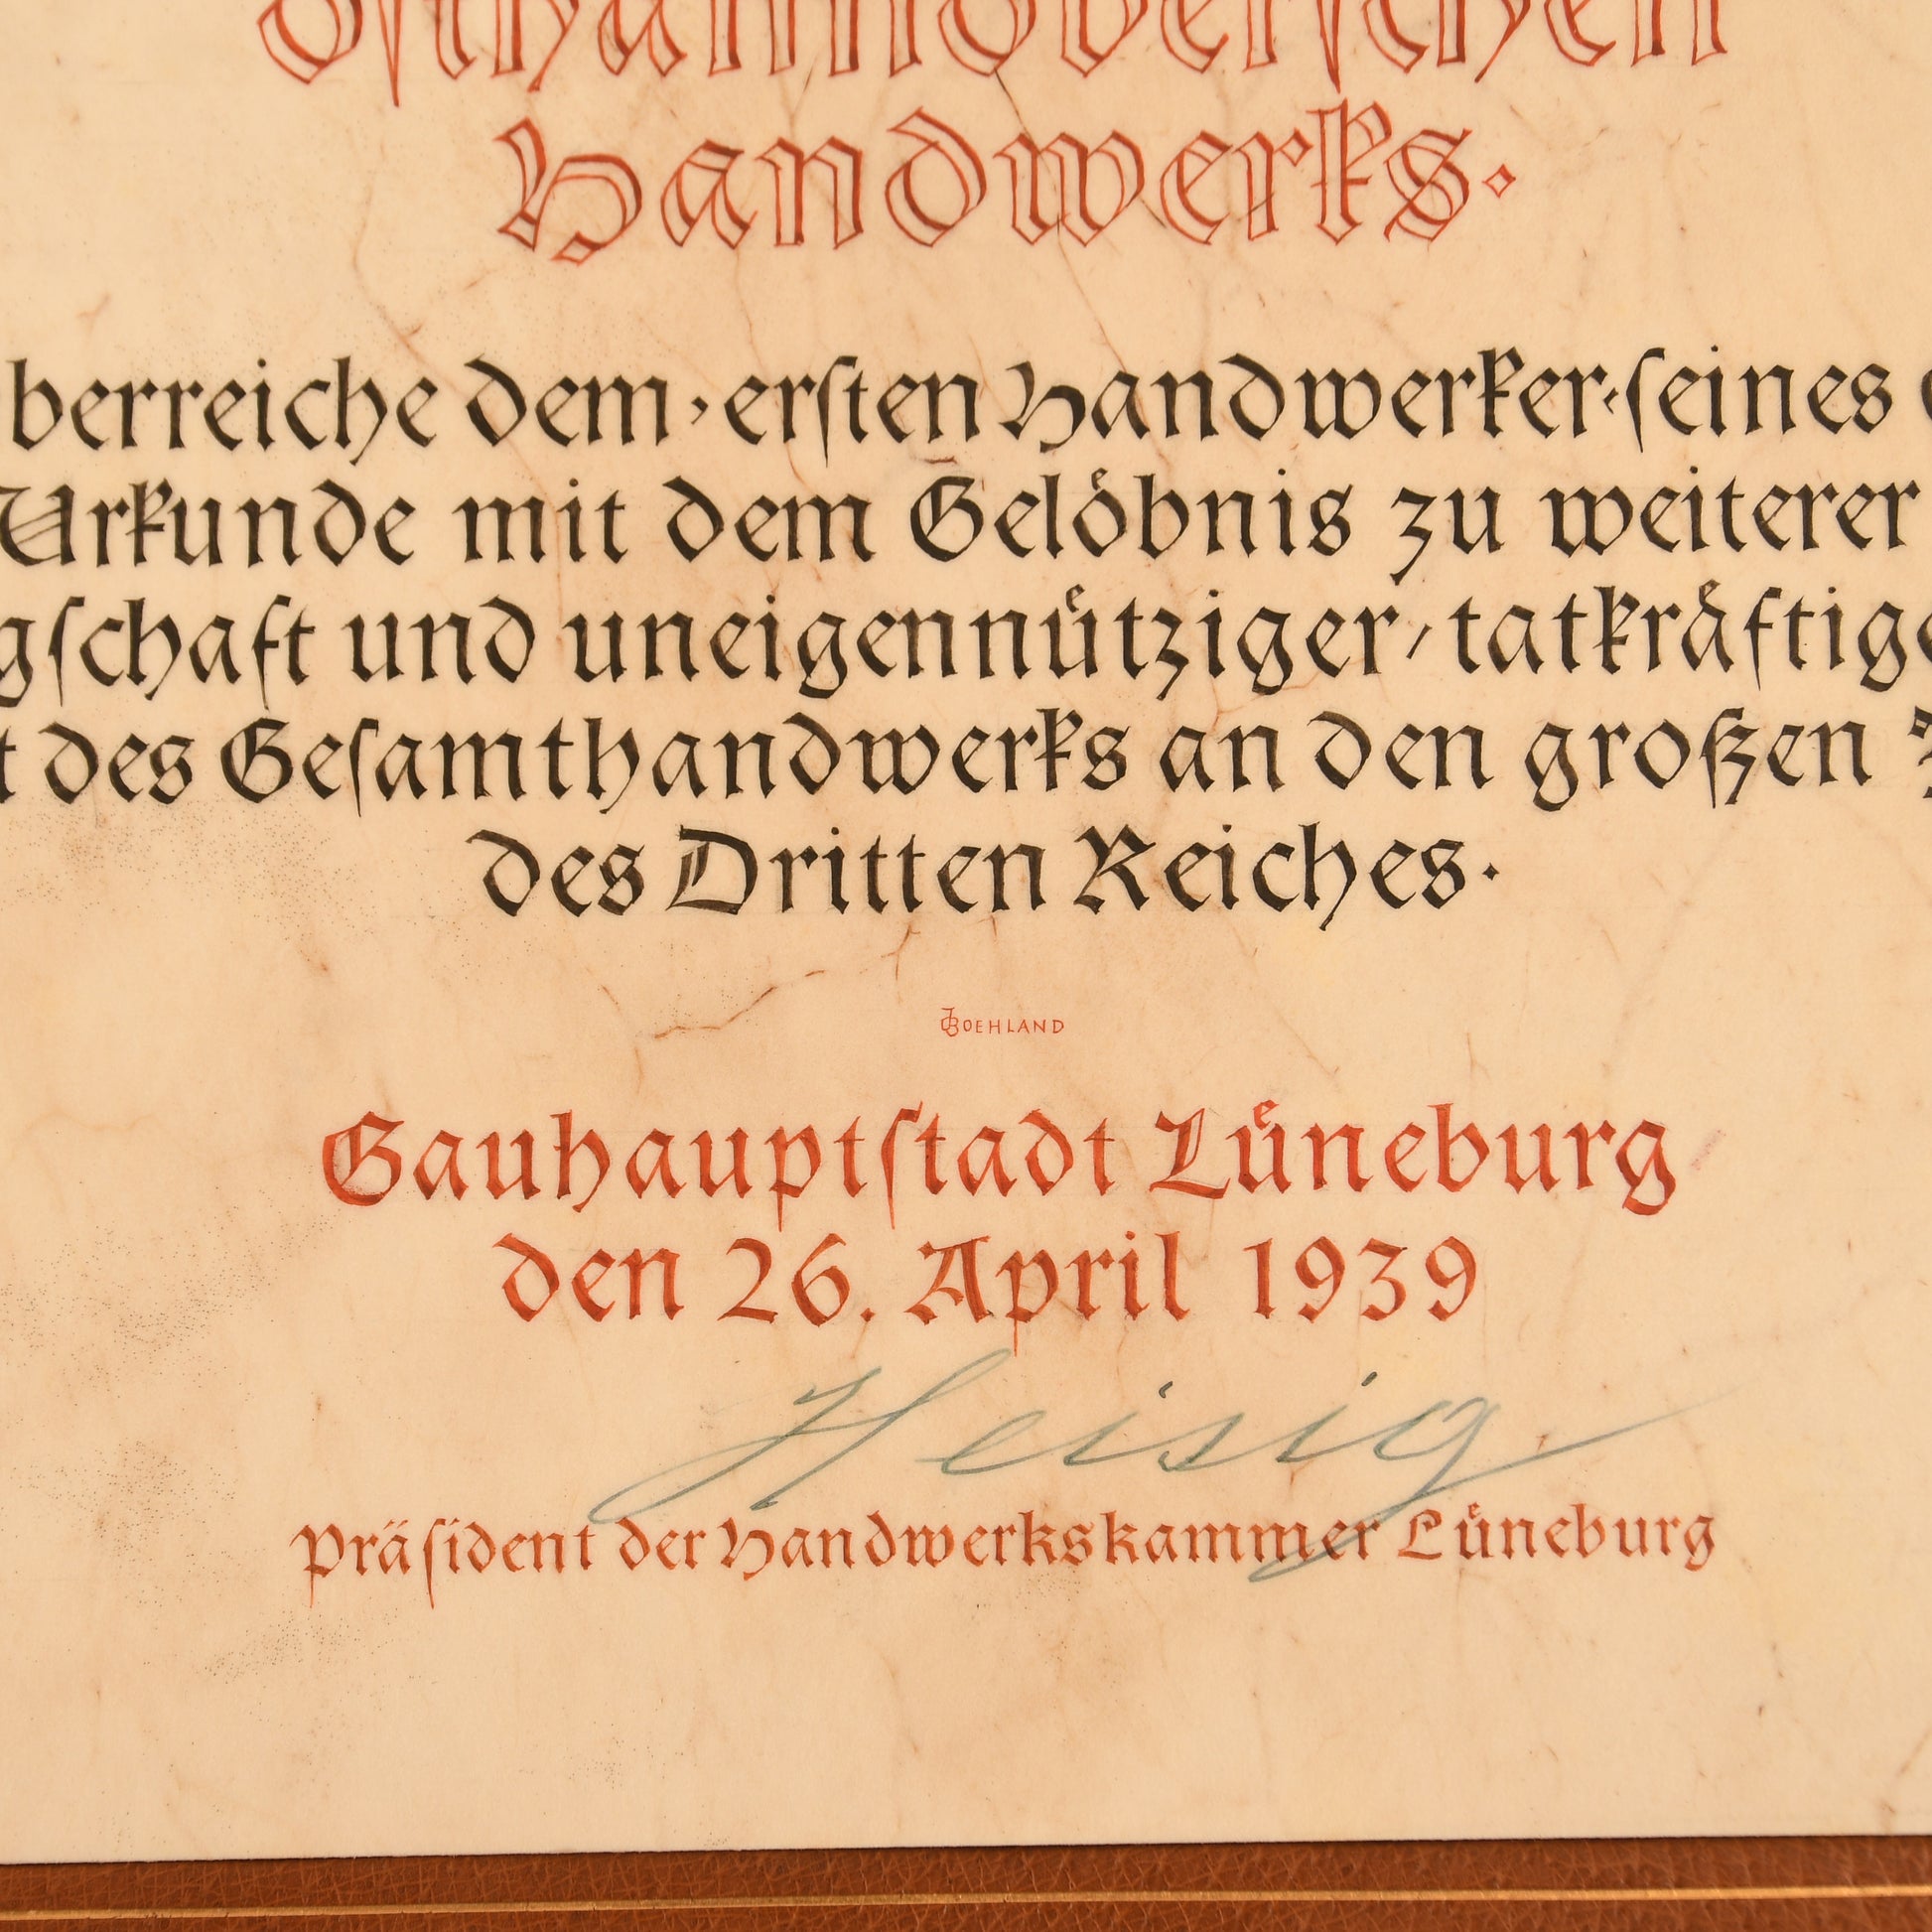 osthannoverschen
Handwerks.
berreiche dem, ersten Handwerker, seines
Urkunde mit dem Gelöbnis zu weiterer
gschaft und uneigennütziger, tatkräftige
t des Gesamthandwerks an den großen
des Dritten Reiches.
JBOEHLAND
Gauhauptstadt Lüneburg
den 26. April 1939
Heisig
Präsident der Handwerkskammer Lüneburg